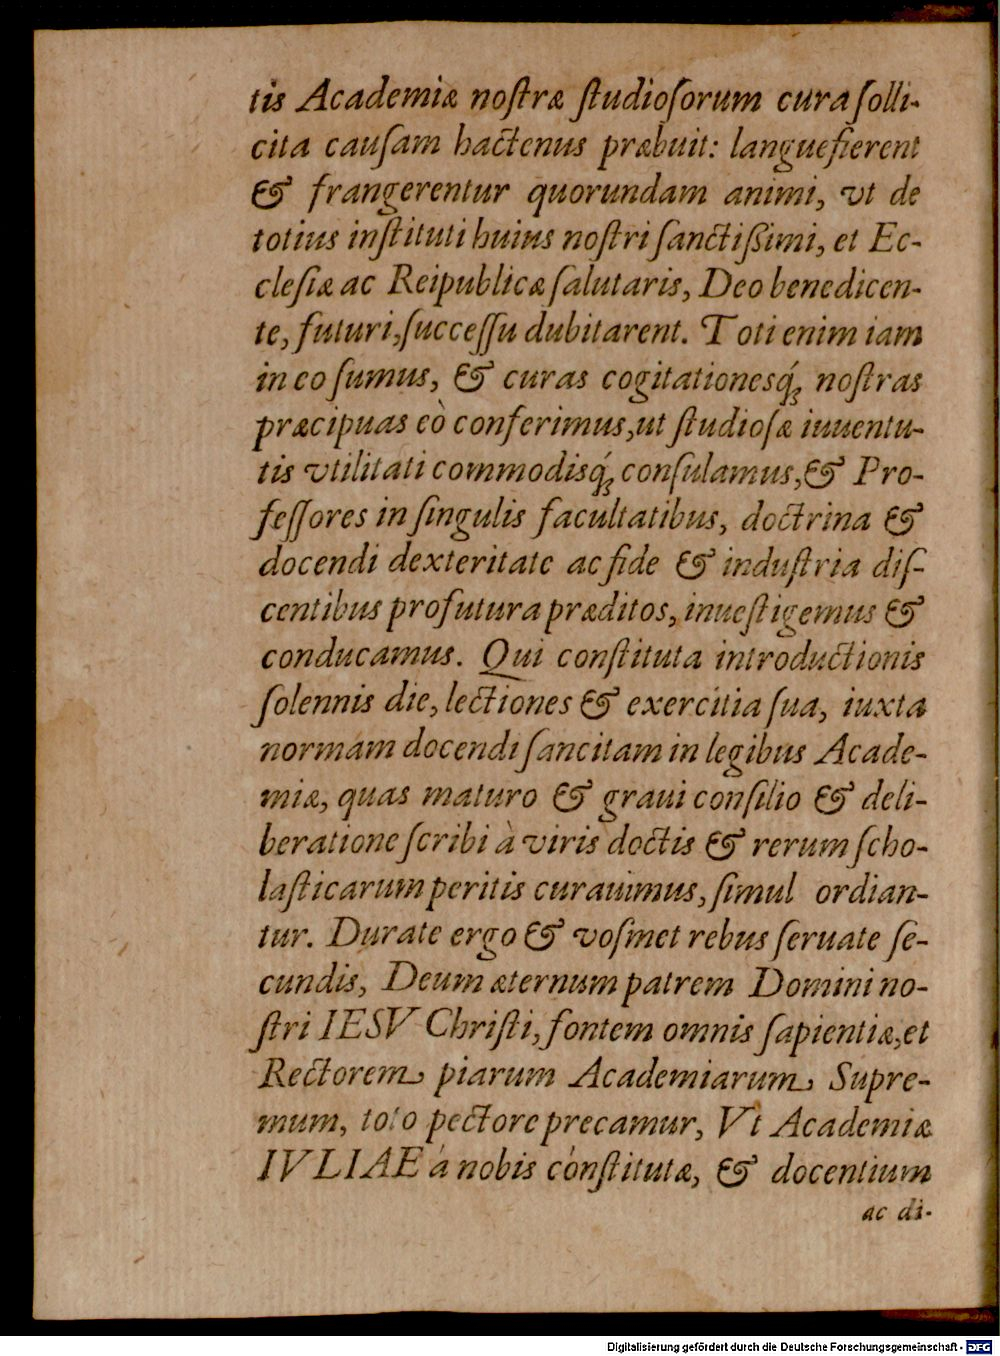 tis Academiæ noſtræ ſtudioſorum cura ſolli-
cita cauſam hactenus præbuit: languefierent
& frangerentur quorundam animi, vt de
totius inſtituti huius noſtri ſanctißimi, et Ec-
cleſiæ ac Reipublicæ ſalutaris, Deo benedicen-
te, futuri, ſucceſſu dubitarent. Toti enim iam
in eo ſumus, & curas cogitationesq́ꝫ noſtras
præcipuas eò conferimus, ut ſtudioſæ iuuentu-
tis vtilitati commodisq́ꝫ conſulamus, & Pro-
feſſores in ſingulis facultatibus, doctrina &
docendi dexteritate ac fide & induſtria diſ-
centibus profutura præditos, inueſtigemus &
conducamus. Qui conſtituta introductionis
ſolennis die, lectiones & exercitia ſua, iuxta
normam docendi ſancitam in legibus Acade-
miæ, quas maturo & graui conſilio & deli-
beratione ſcribi à viris doctis & rerum ſcho-
laſticarum peritis curauimus, ſimul ordian-
tur. Durate ergo & voſmet rebus ſeruate ſe-
cundis, Deum æternum patrem Domini no-
ſtri IESV Chriſti, fontem omnis ſapientiæ, et
Rectorem piarum Academiarum Supre-
mum, toto pectore precamur, Vt Academiæ
IVLIAE à nobis conſtitutæ, & docentium
ac di-
Digitalisierung gefördert durch die Deutsche Forschungsgemeinschaft - DFG